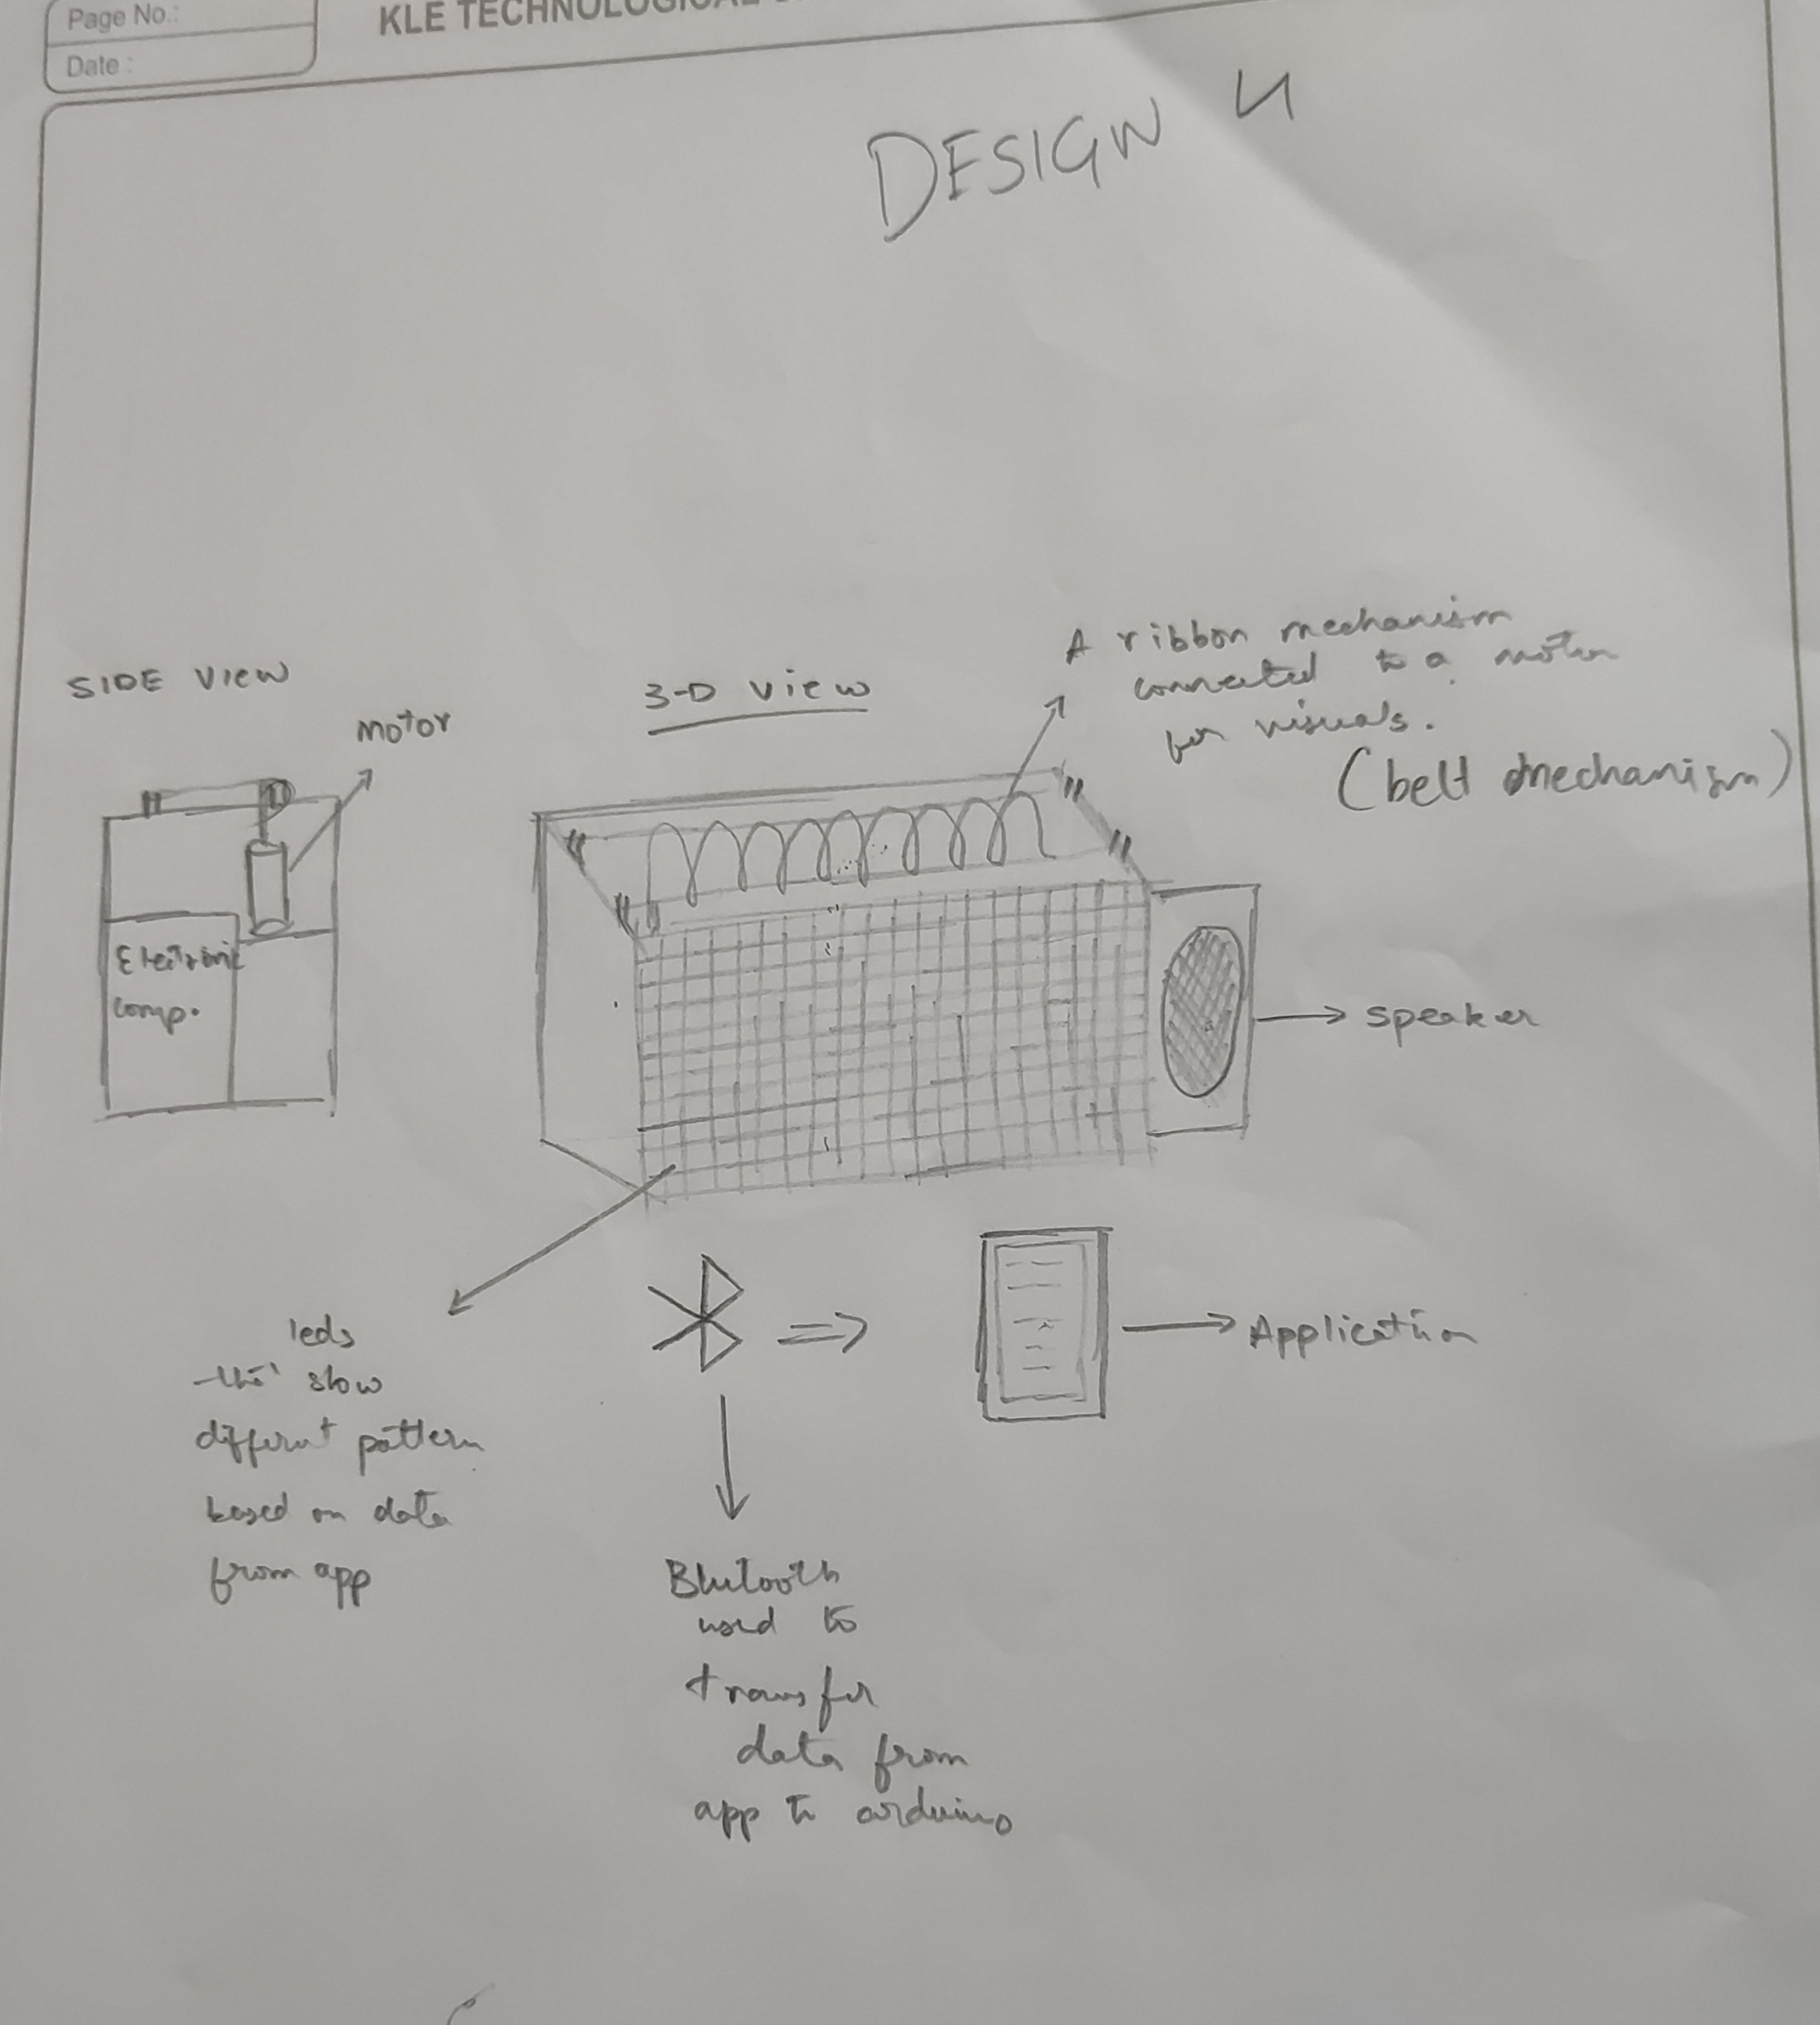 Page No.:
Date :
KLE TECHNOLOGICAL
DESIGN 4
SIDE VIEW
motor
Electronic
comp.
3-D view
A ribbon mechanism
connected to a motor
for visuals.
(belt mechanism)
speaker
leds
slow
differnt pattern
based on data
from app
Application
Blutooth
used to
transfer
data from
app to arduino